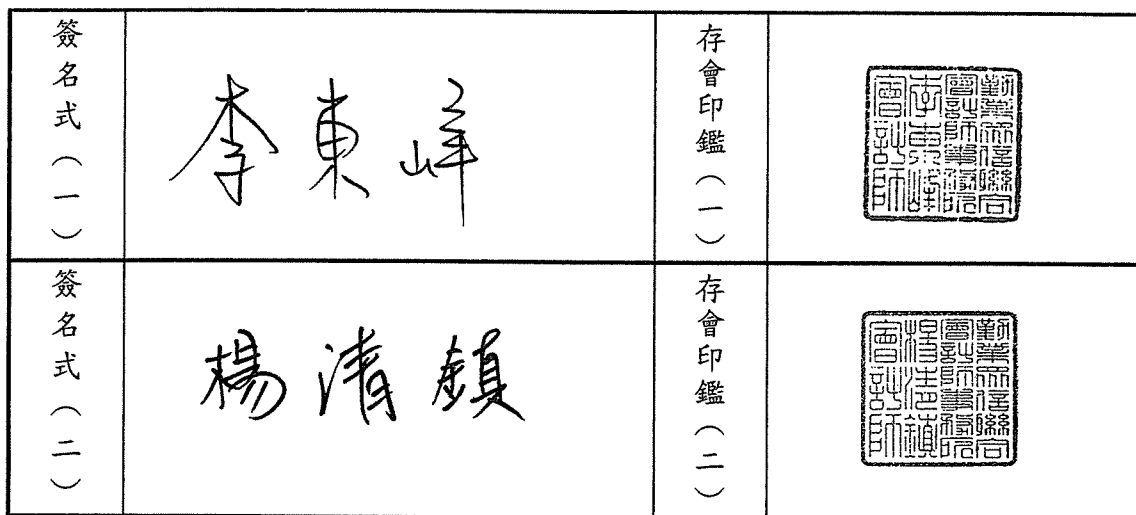 簽名式（一）
李東峰
存會印鑑（一）
勤業眾信聯合
會計師事務所
李東峰
會計師
簽名式（二）
楊清鎮
存會印鑑（二）
勤業眾信聯合
會計師事務所
楊清鎮
會計師